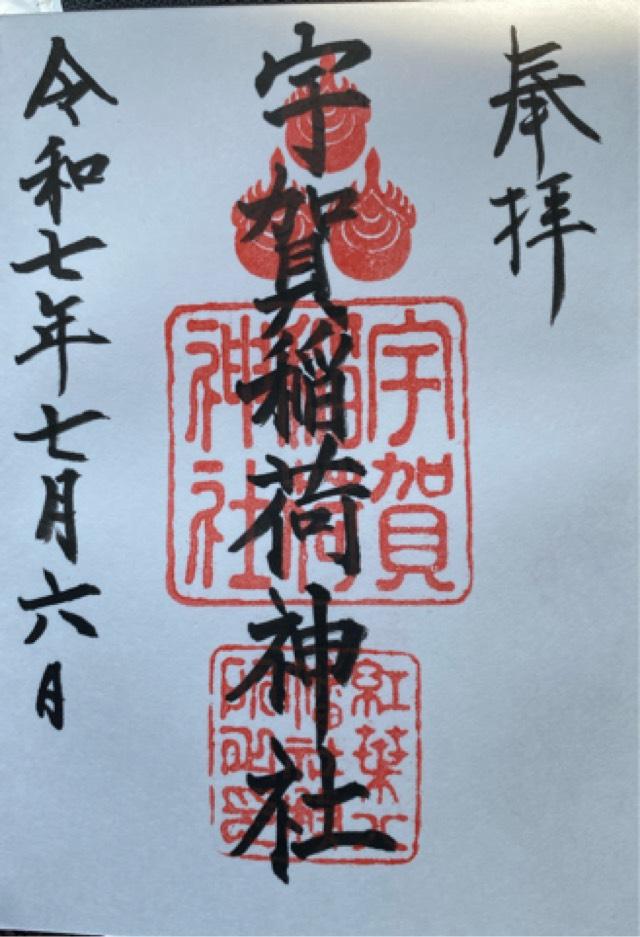 奉拝
宇賀稲荷神社
宇賀稲荷神社
紅葉八
令和七年七月六日